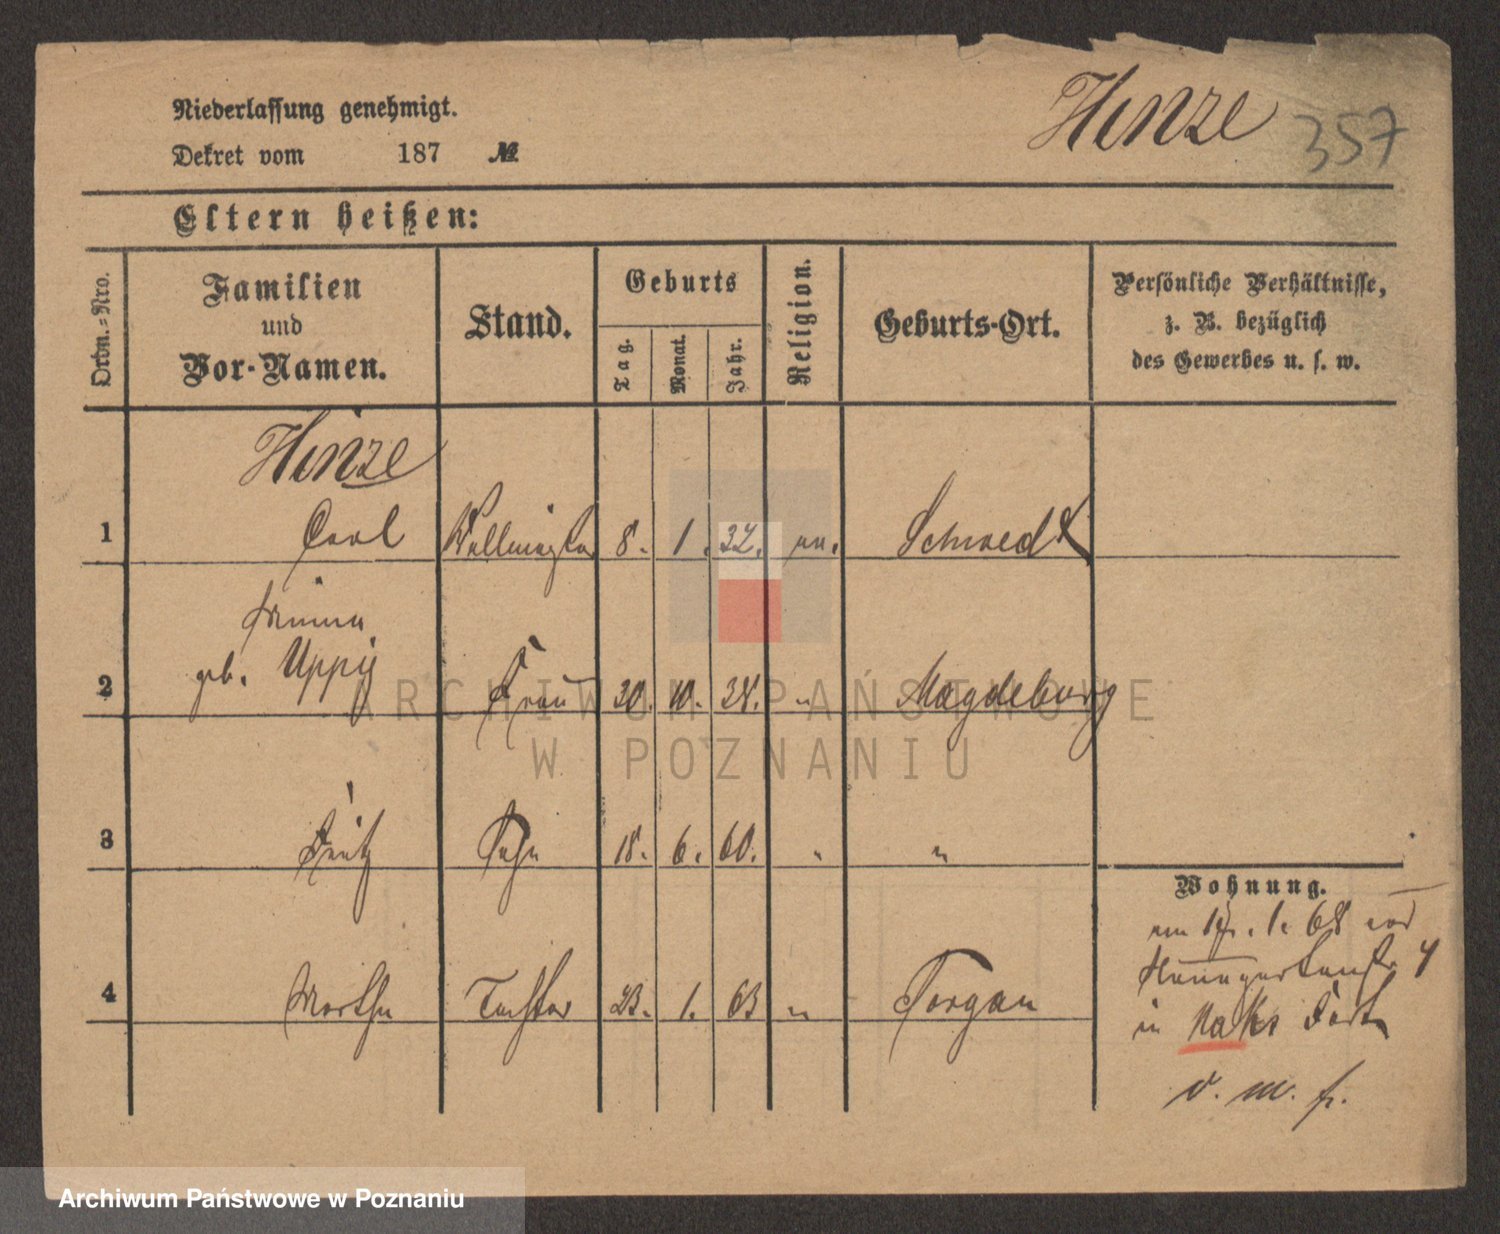 Niederlassung genehmigt.
Hinze 357
Dekret vom 187 №
Eltern heißen:
Ordn.-Nro.
Familien
und
Vor-Namen.
Stand.
Geburts
Tag.
Monat.
Jahr.
Religion.
Geburts-Ort.
Persönliche Verhältnisse,
z. B. bezüglich
des Gewerbes u. s. w.
Hinze
1 Carl 8. 1. 32. ev. Schwedt
Minna
2 geb. Frau 30. 10. " Magdeburg
3 Fritz Sohn 18. 6. 60. " "
4 Martha Tochter 23. 1. 63 " Torgau
Wohnung.
1. 68
in
v. m. f.
ARCHIWUM PAŃSTWOWE
W POZNANIU
Archiwum Państwowe w Poznaniu